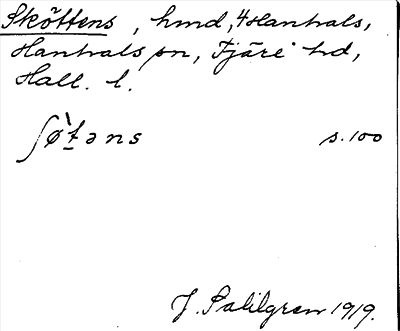 Sköttens, hmd, 4 Hanhals,
Hanhals sn, Fjäre hd,
Hall. l.
ʃø̀t̠əns s. 100
J. Sahlgren 1919.